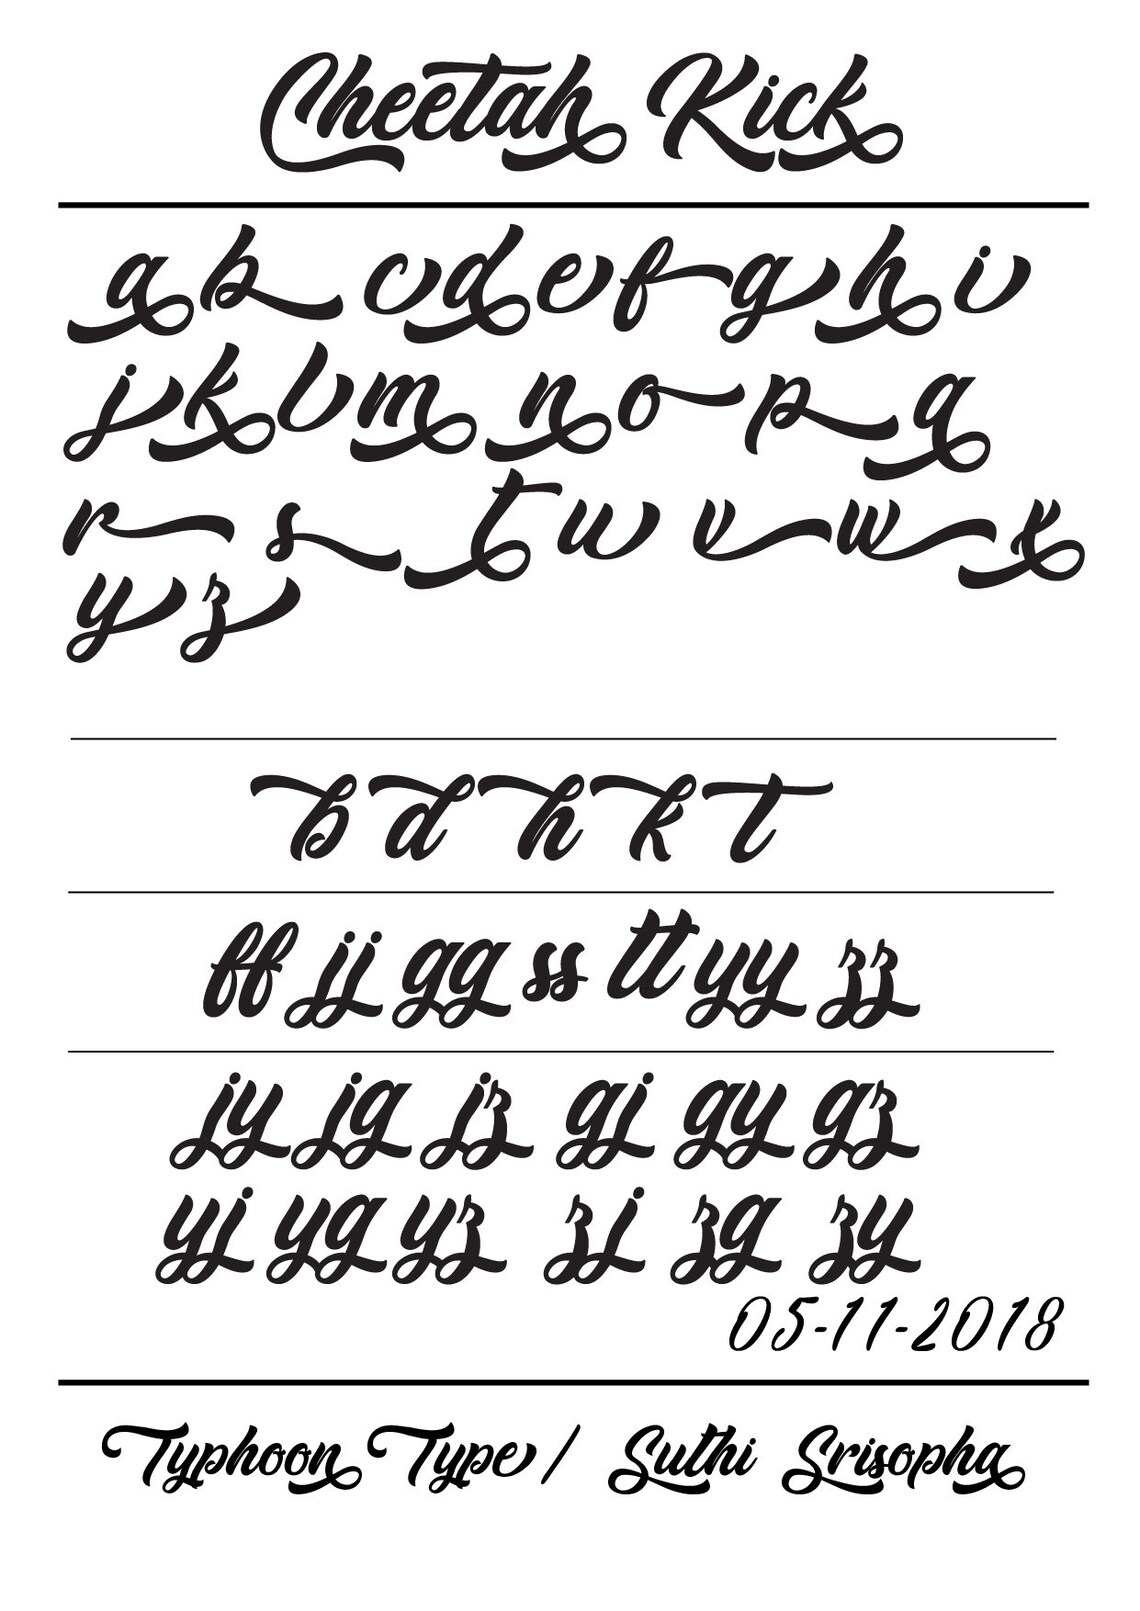 Cheetah Kick
a b c d e f g h i
j k l m n o p q
r s t u v w x
y z
b d h k t
ff jj gg ss tt yy zz
jy jg jz gj gy gz
yj yg yz zj zg zy
05-11-2018
Typhoon Type / Suthi Srisopha